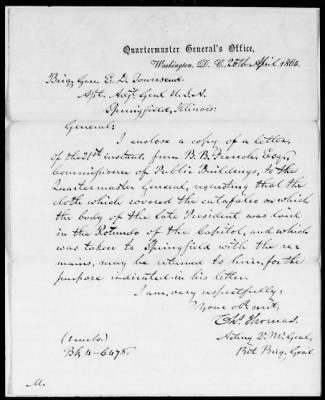 Quartermaster General's Office,
Washington, D. C. 28th April 1865.
Brig. Gen. E. D. Townsend.
Asst. Adjt. Genl U.S.A.
Springfield, Illinois.
General:
I enclose a copy of a letter,
of the 21st instant from B. B. French, Esq.,
Commissioner of Public Buildings, to the
Quartermaster General, requesting that the
cloth which covered the catafalco on which
the body of the late President was laid
in the Rotundo of the Capitol, and which
was taken to Springfield with the re-
mains, may be returned to him, for the
purpose indicated in his letter.
I am, very respectfully,
Your obt svt,
Chs. Thomas.
Acting Q. M. Genl,
Bvt Brig. Genl
(1 enclo.)
Bk 4-6478.
M.